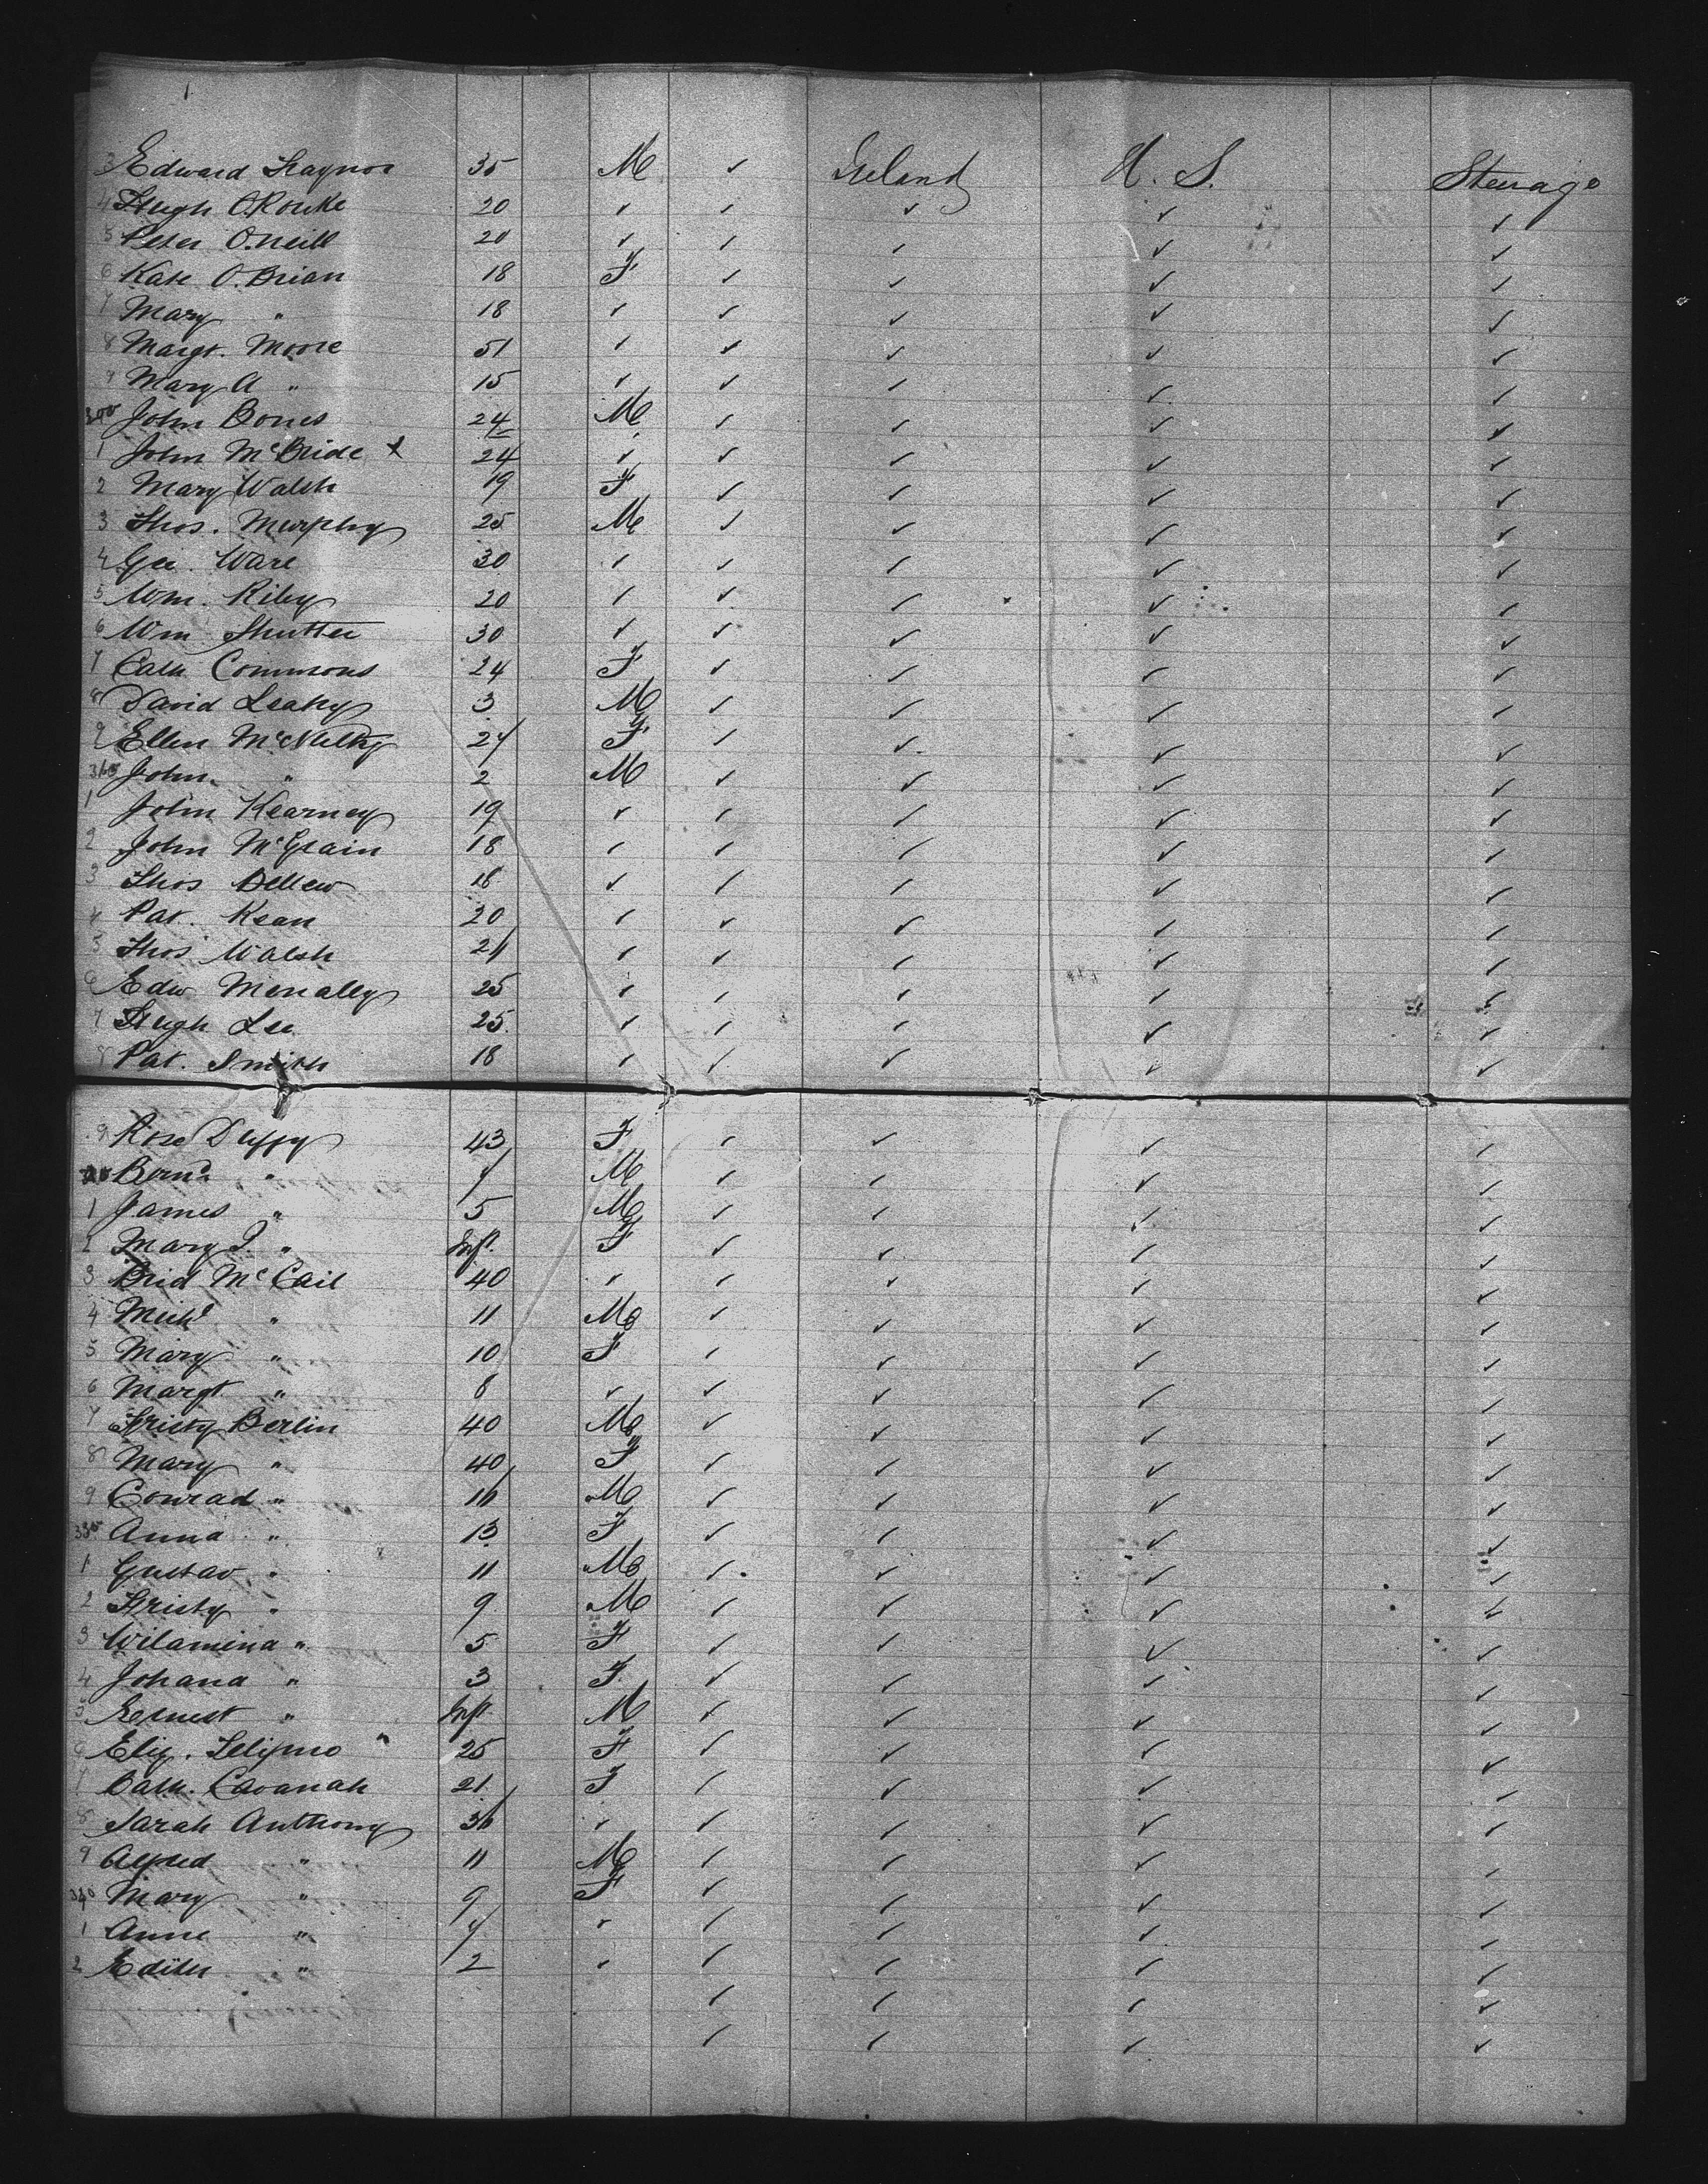 3 Edward Traynor 35 M ✓ Ireland U. S. Steerage
4 Hugh O.Rourke 20 ✓ ✓ ✓ ✓ ✓
5 Peter O.neill 20 ✓ ✓ ✓ ✓ ✓
6 Kate O.Brian 18 F ✓ ✓ ✓ ✓
7 Mary " 18 ✓ ✓ ✓ ✓ ✓
8 Margt. Moore 51 ✓ ✓ ✓ ✓ ✓
9 Mary A " 15 ✓ ✓ ✓ ✓ ✓
300 John Bones 24 M ✓ ✓ ✓ ✓
1 John McBride x 24 ✓ ✓ ✓ ✓ ✓
2 Mary Walsh 19 F ✓ ✓ ✓ ✓
3 Thos. Murphy 25 M ✓ ✓ ✓ ✓
4 Geo. Ware 30 ✓ ✓ ✓ ✓ ✓
5 Wm. Riley 20 ✓ ✓ ✓ ✓ ✓
6 Wm Shutter 30 ✓ ✓ ✓ ✓ ✓
7 Cath Commons 24 F ✓ ✓ ✓ ✓
8 David Leahy 3 M ✓ ✓ ✓ ✓
9 Ellen McNulty 24 F ✓ ✓ ✓ ✓
310 John. " 2 M ✓ ✓ ✓ ✓
1 John Kearney 19 ✓ ✓ ✓ ✓ ✓
2 John McGrain 18 ✓ ✓ ✓ ✓ ✓
3 Thos Bellew 18 ✓ ✓ ✓ ✓ ✓
4 Pat. Kean 20 ✓ ✓ ✓ ✓ ✓
5 Thos Walsh ✓ ✓ ✓ ✓ ✓
6 Edw Menally 25 ✓ ✓ ✓ ✓ ✓
7 Hugh Lee 25. ✓ ✓ ✓ ✓ ✓
8 Pat. Smith 18 ✓ ✓ ✓ ✓ ✓
9 Rose Duffy 43 F ✓ ✓ ✓ ✓
Bernd " 7 M ✓ ✓ ✓ ✓
1 James " 5 M ✓ ✓ ✓ ✓
2 Mary J. " Inft. F ✓ ✓ ✓ ✓
3 Brid McCail 40 ✓ ✓ ✓ ✓ ✓
4 Michl " 11 M ✓ ✓ ✓ ✓
5 Mary " 10 F ✓ ✓ ✓ ✓
6 Margt " 8 ✓ ✓ ✓ ✓ ✓
7 Fristy Berlin 40 M ✓ ✓ ✓ ✓
8 Mary " 40 F ✓ ✓ ✓ ✓
9 Conrad " 16 M ✓ ✓ ✓ ✓
330 Anna " 13 F ✓ ✓ ✓ ✓
1 Gustav " 11 M ✓ ✓ ✓ ✓
2 Fristy " 9 M ✓ ✓ ✓ ✓
3 Wilamina " 5 F ✓ ✓ ✓ ✓
4 Johana " 3 F. ✓ ✓ ✓ ✓
5 Ernest " Inft M ✓ ✓ ✓ ✓
6 Eliz. 25 F ✓ ✓ ✓ ✓
7 Cath. Cavanah 21 F ✓ ✓ ✓ ✓
8 Sarah Anthony 36 ✓ ✓ ✓ ✓ ✓
9 Alfred " 11 M ✓ ✓ ✓ ✓
340 Mary " 9 F ✓ ✓ ✓ ✓
1 Anne " 7 ✓ ✓ ✓ ✓ ✓
2 Edith " 2 ✓ ✓ ✓ ✓ ✓
✓ ✓ ✓ ✓
✓ ✓ ✓ ✓